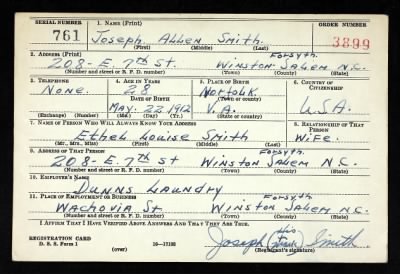 SERIAL NUMBER 1. NAME (Print) ORDER NUMBER
761 Joseph Allen Smith 3899
(First) (Middle) (Last)
2. ADDRESS (Print) Forsyth
208-E. 7th St Winston-Salem N.C.
(Number and street or R. F. D. number) (Town) (County) (State)
3. TELEPHONE 4. AGE IN YEARS 5. PLACE OF BIRTH 6. COUNTRY OF CITIZENSHIP
None. 28 Norfolk
DATE OF BIRTH (Town or county)
May. 22 1912 V.A. U.S.A.
(Exchange) (Number) (Mo.) (Day) (Yr.) (State or country)
7. NAME OF PERSON WHO WILL ALWAYS KNOW YOUR ADDRESS 8. RELATIONSHIP OF THAT PERSON
Ethel Louise Smith Wife.
(Mr., Mrs., Miss) (First) (Middle) (Last)
9. ADDRESS OF THAT PERSON Forsyth
208-E. 7th St Winston Salem N.C.
(Number and street or R. F. D. number) (Town) (County) (State)
10. EMPLOYER'S NAME
Dunns Laundry
11. PLACE OF EMPLOYMENT OR BUSINESS Forsyth
Wachovia St Winston Salem N.C.
(Number and street or R. F. D. number) (Town) (County) (State)
I AFFIRM THAT I HAVE VERIFIED ABOVE ANSWERS AND THAT THEY ARE TRUE.
REGISTRATION CARD
D. S. S. Form 1 (over) 16—17105
his
Joseph Smith
(Registrant's signature)